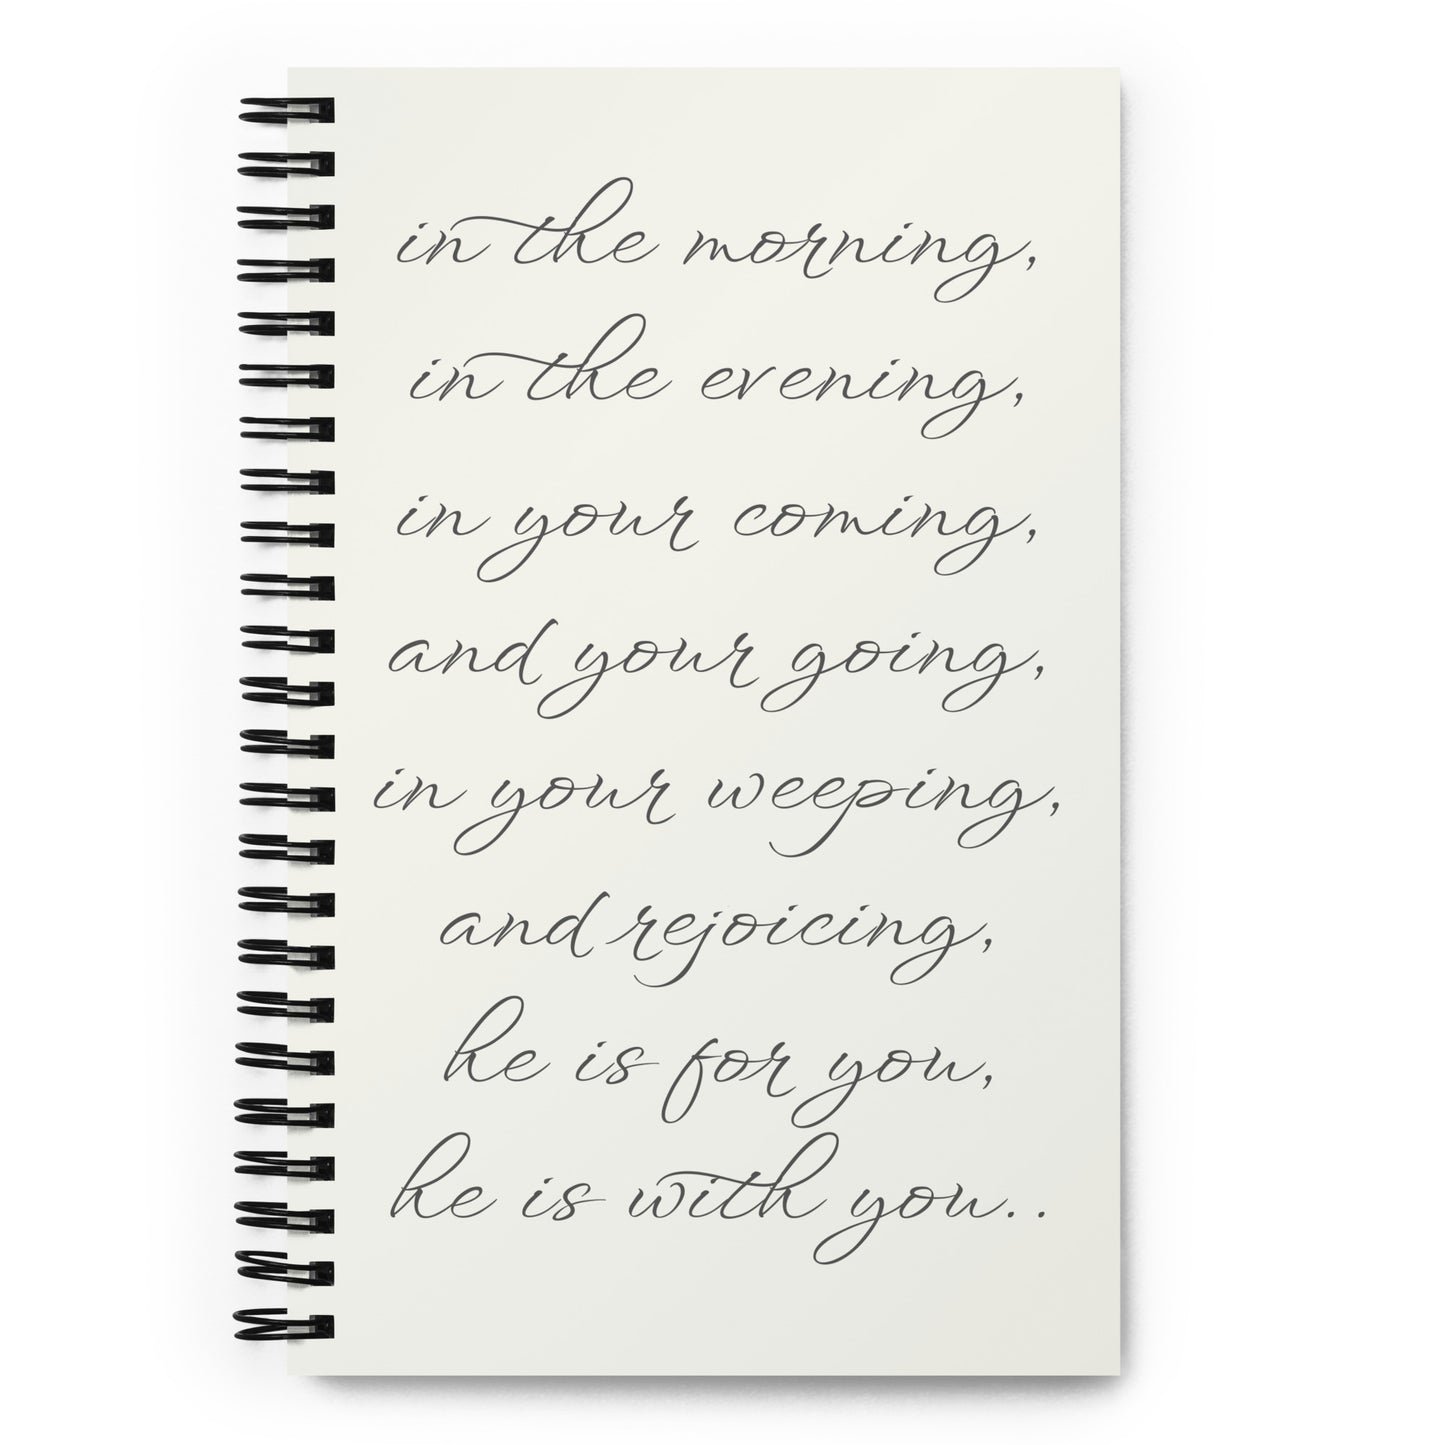 in the morning,
in the evening,
in your coming,
and your going,
in your weeping,
and rejoicing,
he is for you,
he is with you..